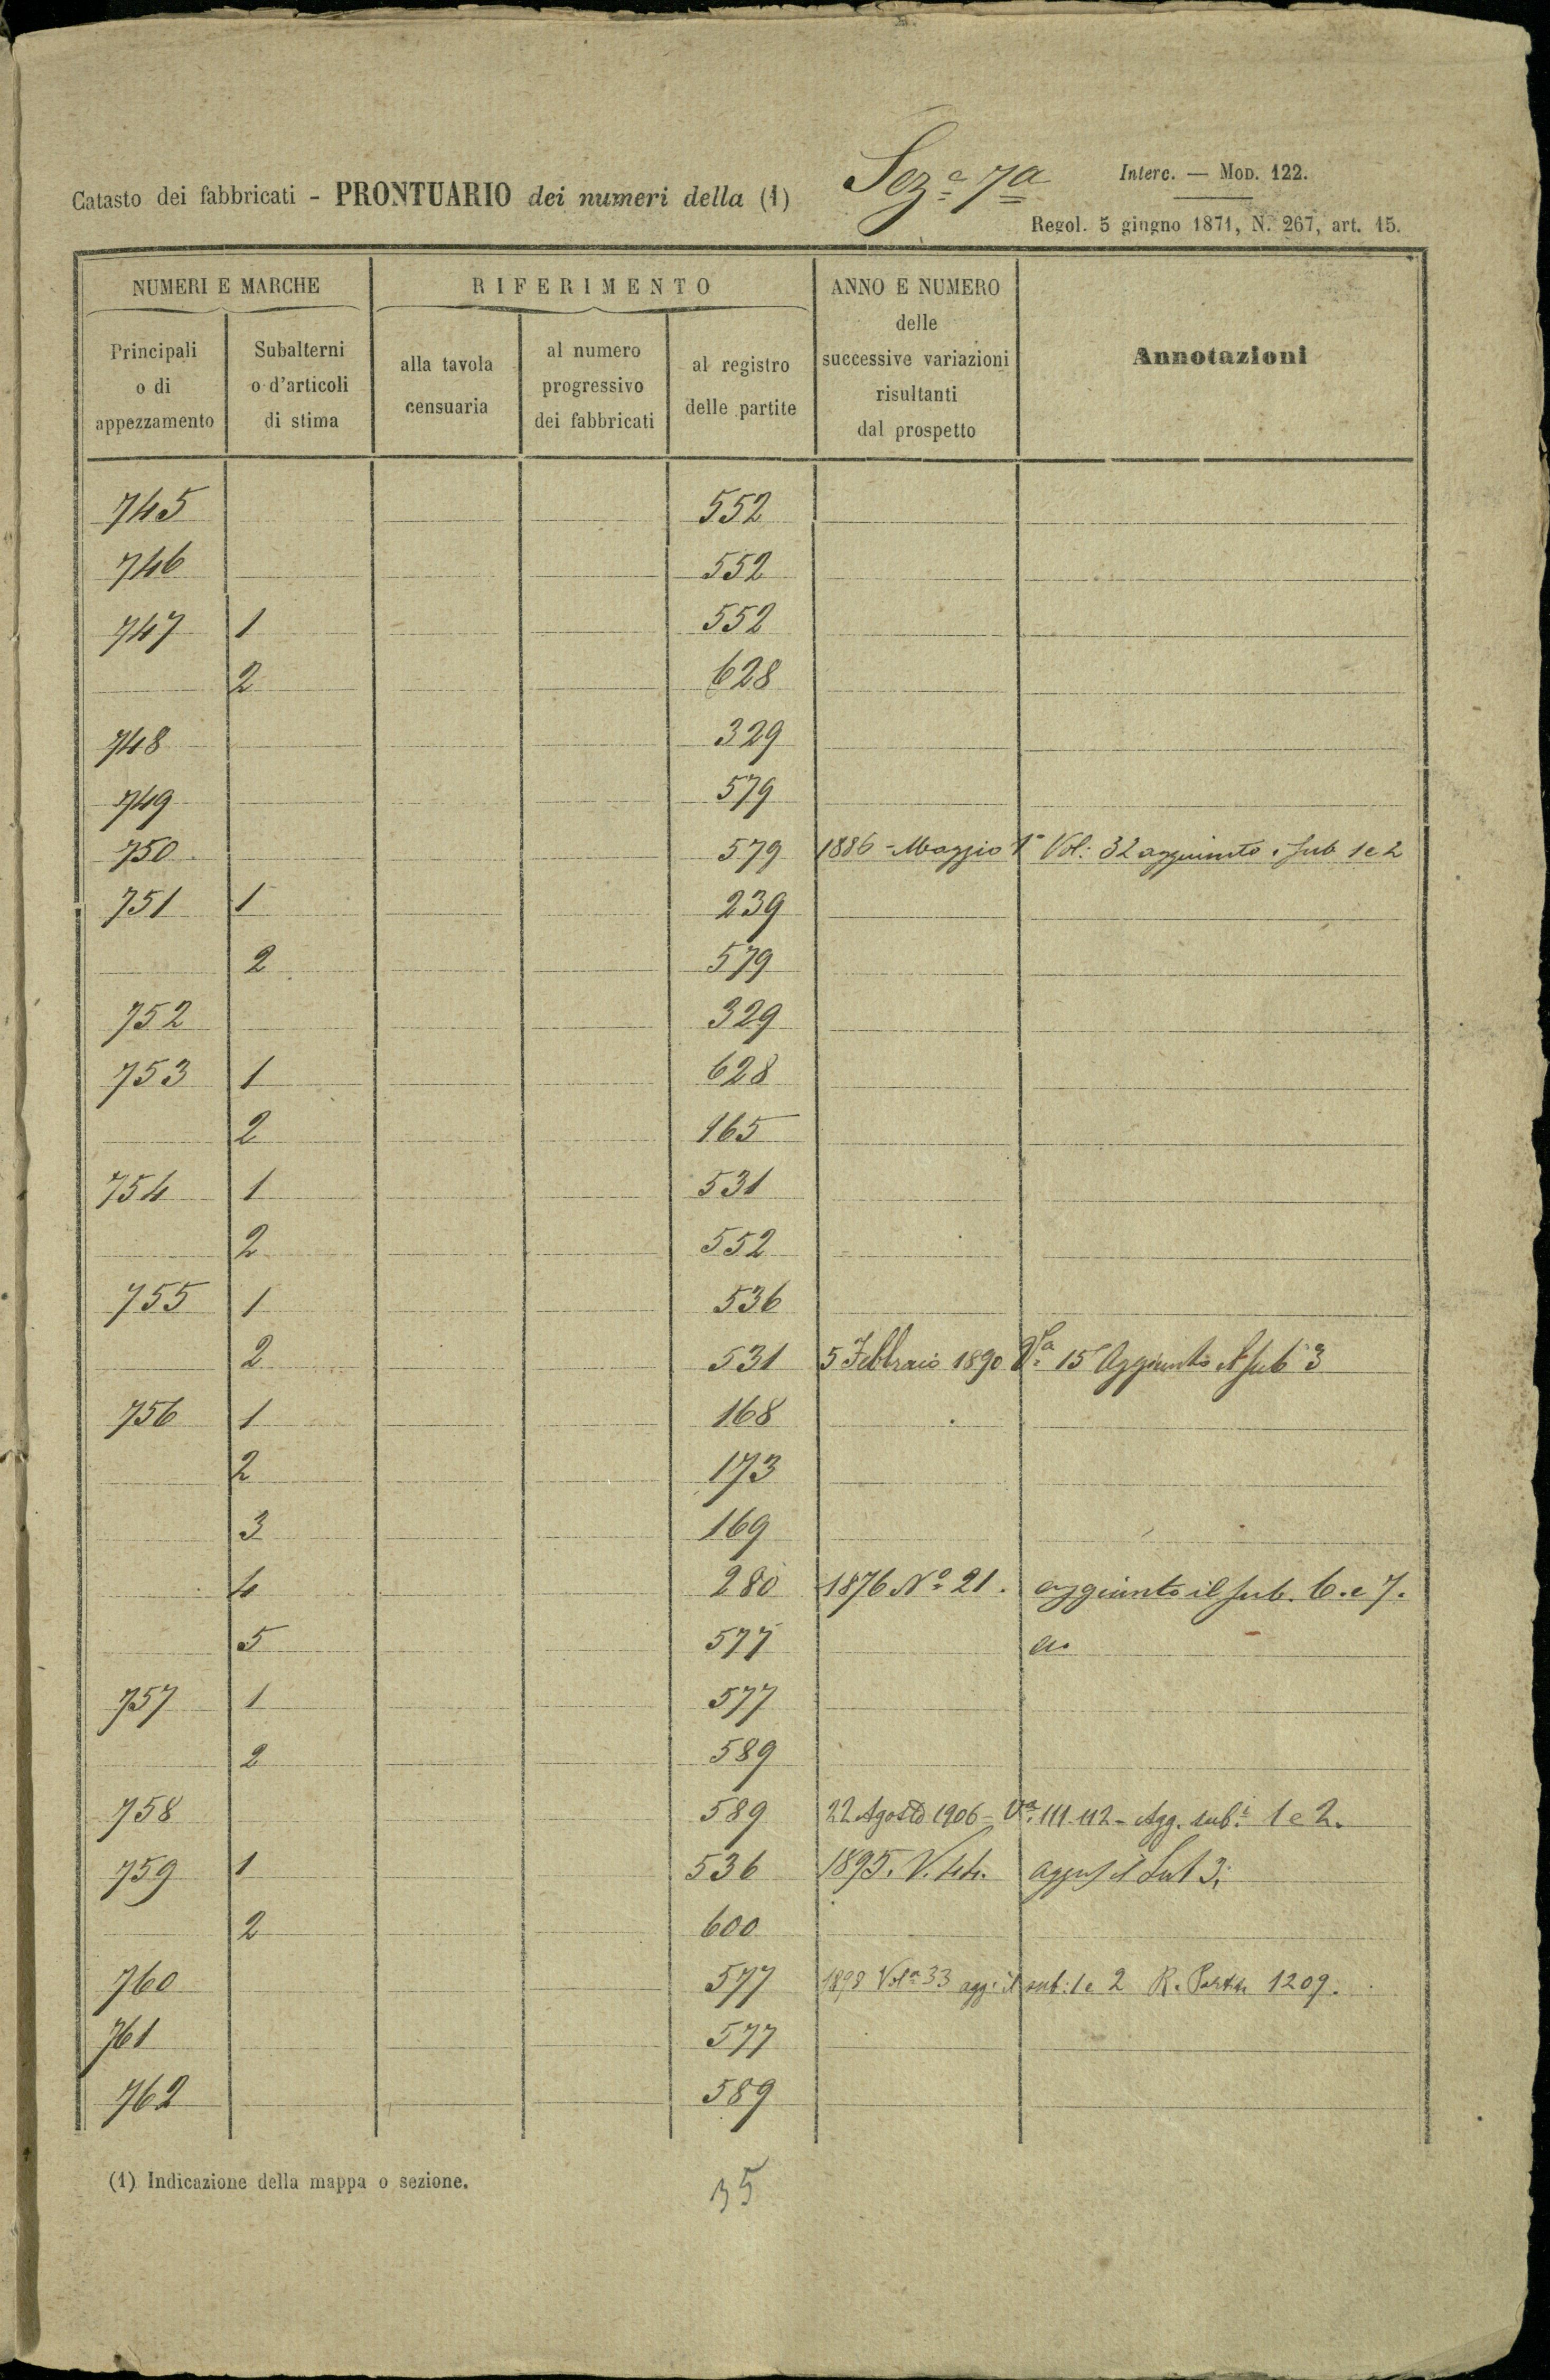 Catasto dei fabbricati - PRONTUARIO dei numeri della (1) Sez.e 7a
Interc. — Mod. 122.
Regol. 5 giugno 1871, N. 267, art. 15.
NUMERI E MARCHE RIFERIMENTO ANNO E NUMERO delle successive variazioni risultanti dal prospetto Annotazioni
Principali o di appezzamento Subalterni o d'articoli di stima alla tavola censuaria al numero progressivo dei fabbricati al registro delle partite
745 552
746 552
747 1 552
2 628
748 329
749 579
750 579 1886 - Maggio 1° Vol: 32 aggiunto sub 1 e 2
751 1 239
2 579
752 329
753 1 628
2 165
754 1 531
2 552
755 1 536
2 531 5 Febbraio 1890 Va 15 Aggiunto il sub 3
756 1 168
2 173
3 169
4 280 1876 No 21. aggiunto il sub. 6. e 7.
5 577
757 1 577
2 589
758 589 22 Agosto 1906 - Va. 111-112 - Agg. sub.i 1 e 2.
759 1 536 1895. V. 44. il Sub 3.
2 600
760 577 1898 33 agg. il sub: 1 e 2 R. 1209.
761 577
762 589
(1) Indicazione della mappa o sezione.
35